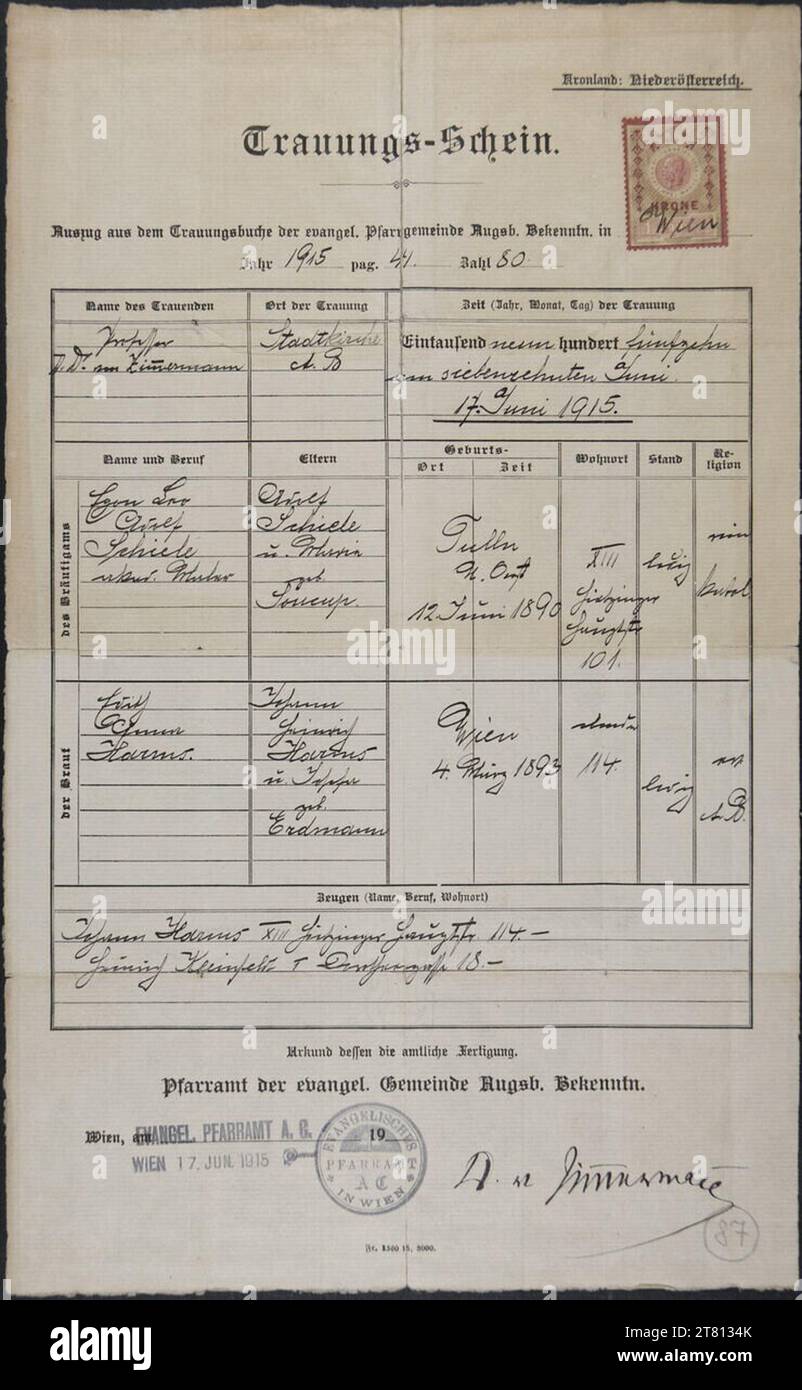 Kronland: Niederösterreich.
Trauungs-Schein.
KRONE
Wien
Auszug aus dem Trauungsbuche der evangel. Pfarrgemeinde Augsb. Bekenntn. in
Jahr 1915 pag. 44. Zahl 80.
Name des Trauenden
Ort der Trauung
Zeit (Jahr, Monat, Tag) der Trauung
Professor
Zimmermann
Stadtkirche
A. B
Eintausend neun hundert fünfzehn
am siebenzehnten Juni
17. Juni 1915.
Name und Beruf
Eltern
Geburts-
Ort
Zeit
Wohnort
Stand
Re-
ligion
des Bräutigams
Egon Leo
Adolf
Schiele
akad. Maler
Adolf
Schiele
u. Marie
geb.
Soucup.
Tulln
N. Oest
12. Juni 1890
XIII
Hietzinger
Hauptstr
101.
ledig
röm
kathol
der Braut
Edith
Anna
Harms.
Johann
Heinrich
Harms
u. Josefa
geb.
Erdmann
Wien
4. März 1893
ebenda
114.
ledig
ev
A. B.
Zeugen (Name, Beruf, Wohnort)
Johann Harms XIII Hietzinger Hauptstr. 114.–
Heinrich Kleinfeldt I Dorotheergasse 18.–
Urkund dessen die amtliche Fertigung.
Pfarramt der evangel. Gemeinde Augsb. Bekenntn.
Wien, am 19
EVANGEL. PFARRAMT A. C.
WIEN 17. JUN. 1915
EVANGELISCHES
PFARRAMT
A C
IN WIEN
D. v Zimmermann
87
Fr. 1300 15, 8000.
alamy
Image ID: 2T8134K
www.alamy.com